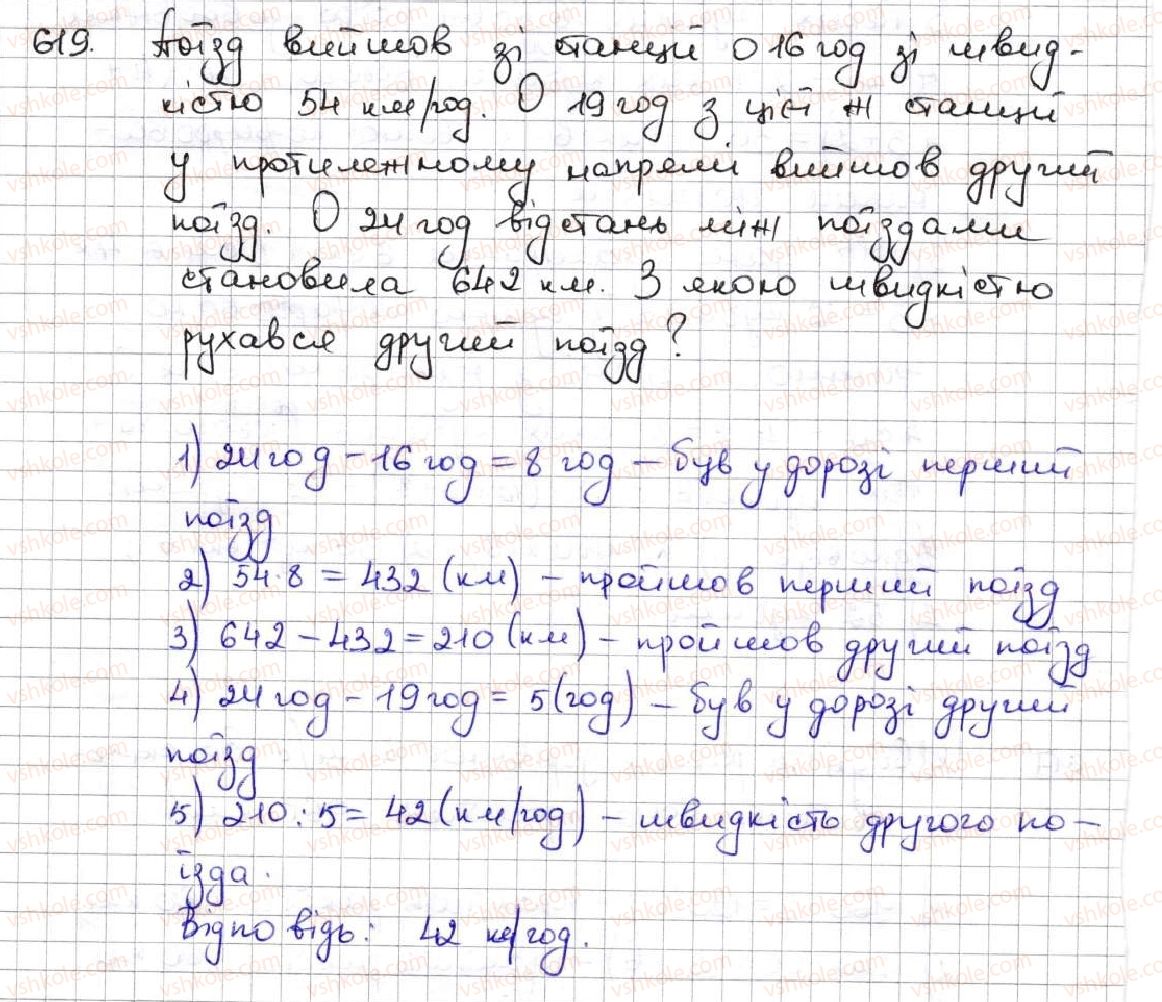 619. Поїзд вийшов зі станції О 16 год зі швид-
кістю 54 км/год. О 19 год з цієї ж станції
у протилежному напрямі вийшов другий
поїзд. О 24 год відстань між поїздами
становила 642 км. З якою швидкістю
рухався другий поїзд?
1) 24 год - 16 год = 8 год - був у дорозі перший
поїзд
2) 54·8 = 432 (км) - пройшов перший поїзд
3) 642 - 432 = 210 (км) - пройшов другий поїзд
4) 24 год - 19 год = 5 (год) - був у дорозі другий
поїзд
5) 210 : 5 = 42 (км/год) - швидкість другого по-
їзда.
Відповідь: 42 км/год.